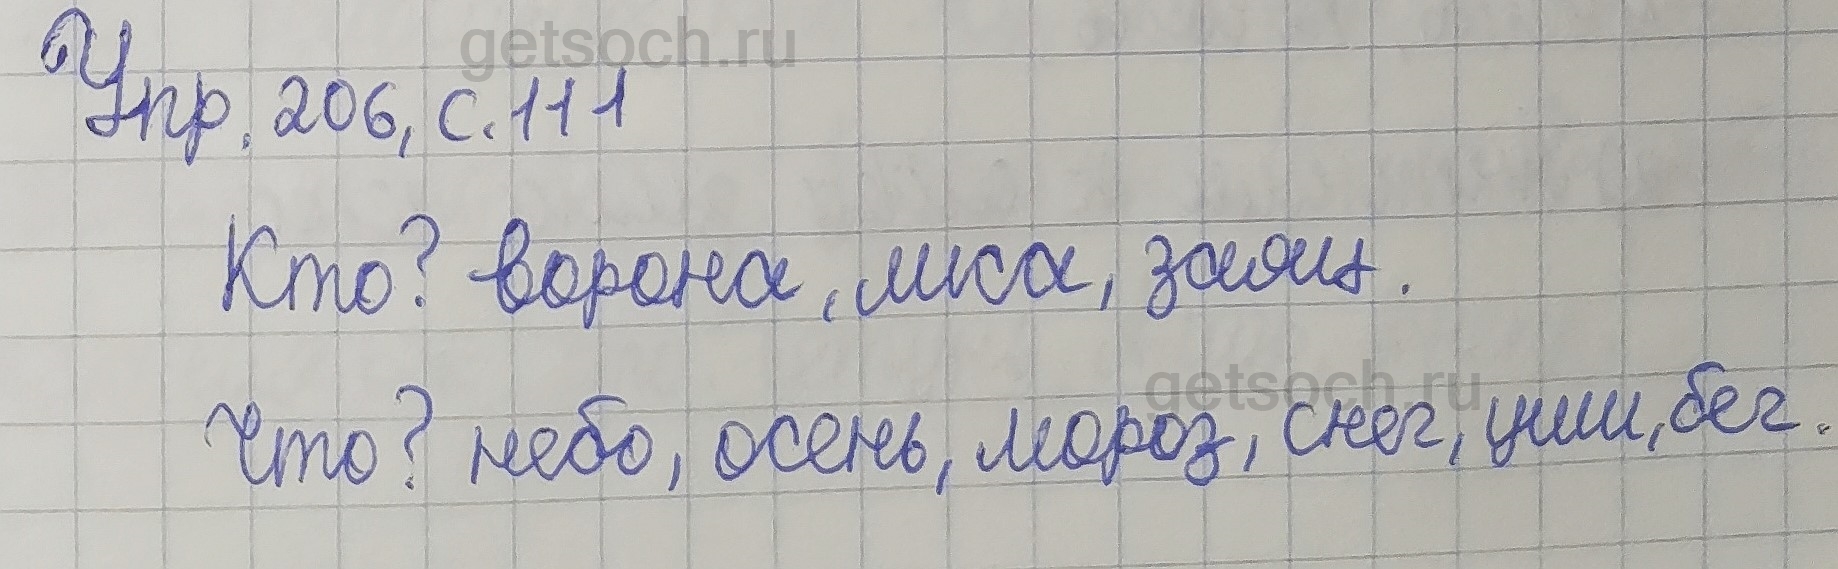 getsoch.ru
Упр. 206, с. 111
Кто? ворона, лиса, заяц.
getsoch.ru
Что? небо, осень, мороз, снег, уши, бег.